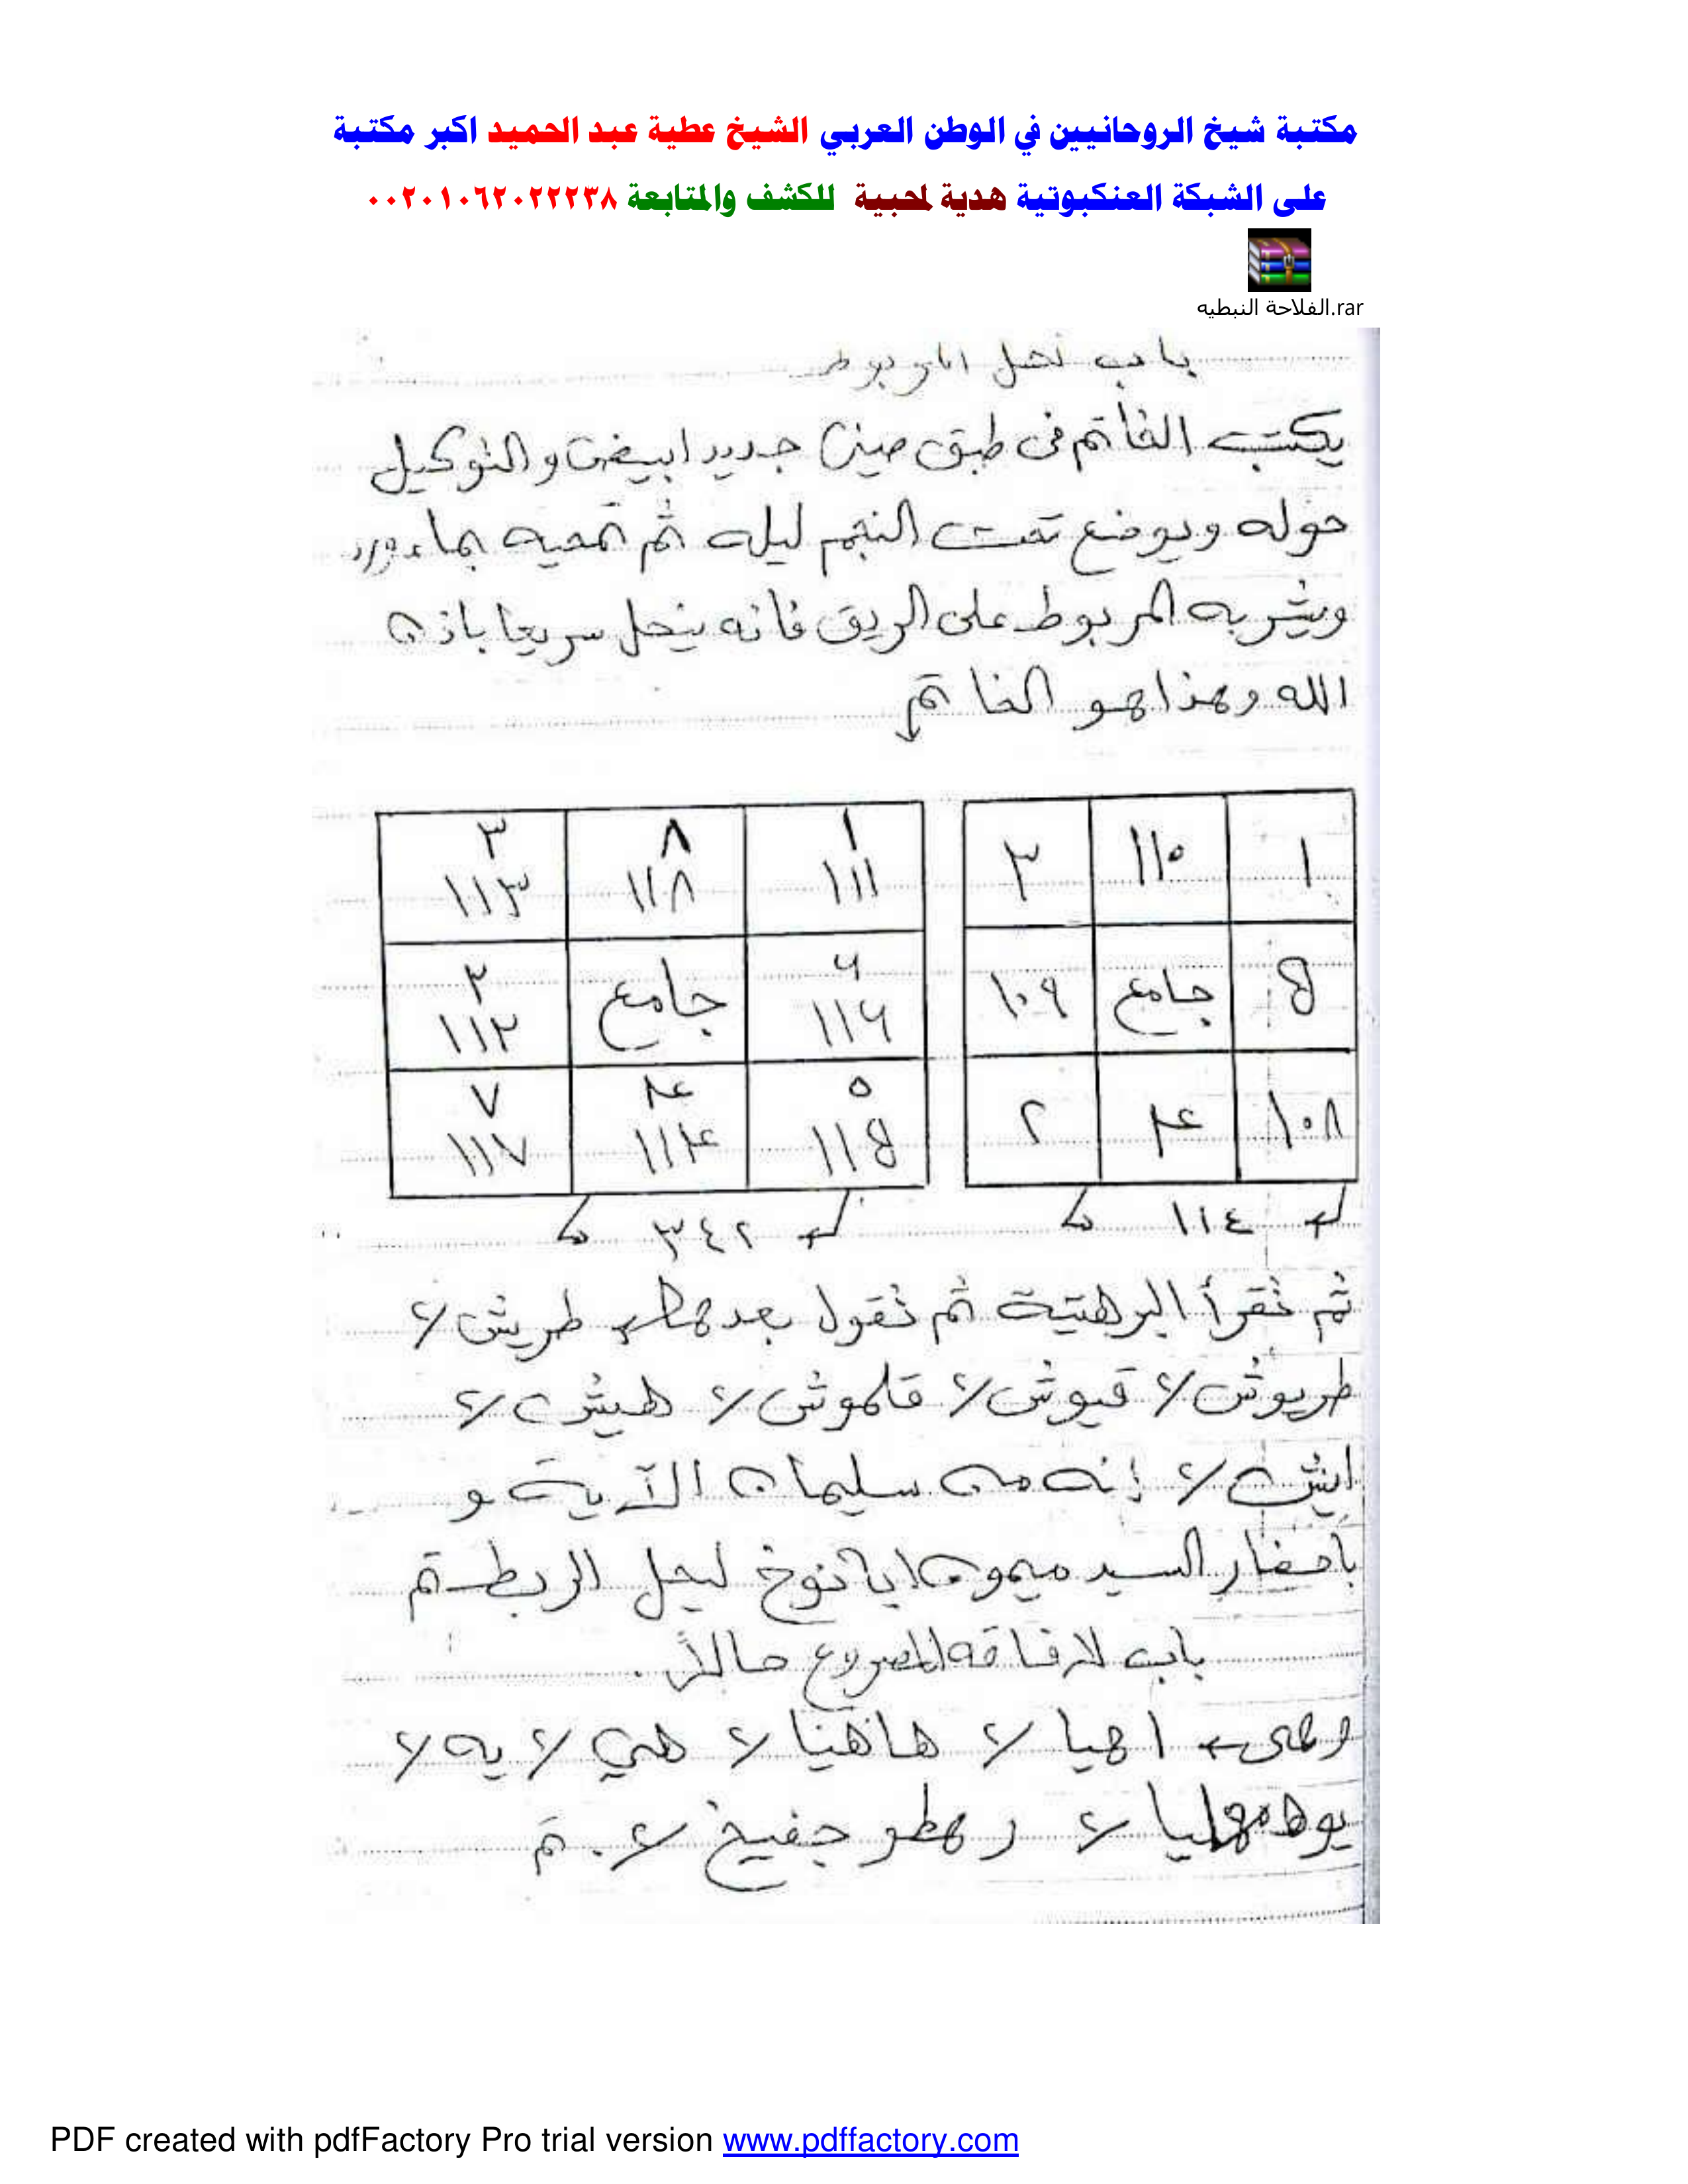 مكتبة شيخ الروحانيين في الوطن العربي الشيخ عطية عبد الحميد اكبر مكتبة
على الشبكة العنكبوتية هدية لمحبية للكشف والمتابعة ٠٠٢٠١٠٦٢٠٢٢٢٣٨
الفلاحة النبطيه.rar
باب لحل المربوط
يكتب الخاتم فى طبق صينى جديد ابيض والتوكيل
حوله ويوضع تحت النجم ليله ثم تمحيه بماء ورد
ويشربه المربوط على الريق فانه ينحل سريعا باذن
الله وهذا هو الخاتم
١ ١١٠ ٣
٥ جامع ١٠٩
١٠٨ ٤ ٢
١١٤
١ ٨ ٣
١١١ ١١٨ ١١٣
٦ جامع ٢
١١٦ ١١٢
٥ ٤ ٧
١١٥ ١١٤ ١١٧
٣٤٢
ثم تقرأ البرهتية ثم تقول بعدها طريش ٢/
طريوش ٢/ قيوش ٢/ قلموش ٢/ هيش ٢/
ايش ٢/ إنه من سليمان الآية و
باحضار السيد ميمون ابانوخ ليحل الربط تم
باب لافاقه المصروع حالاً.
وهى اهيا ٢/ هاهنيا ٢/ هي ٢/ يه ٢/
٢/ جفيخ ٢/. تم
PDF created with pdfFactory Pro trial version www.pdffactory.com